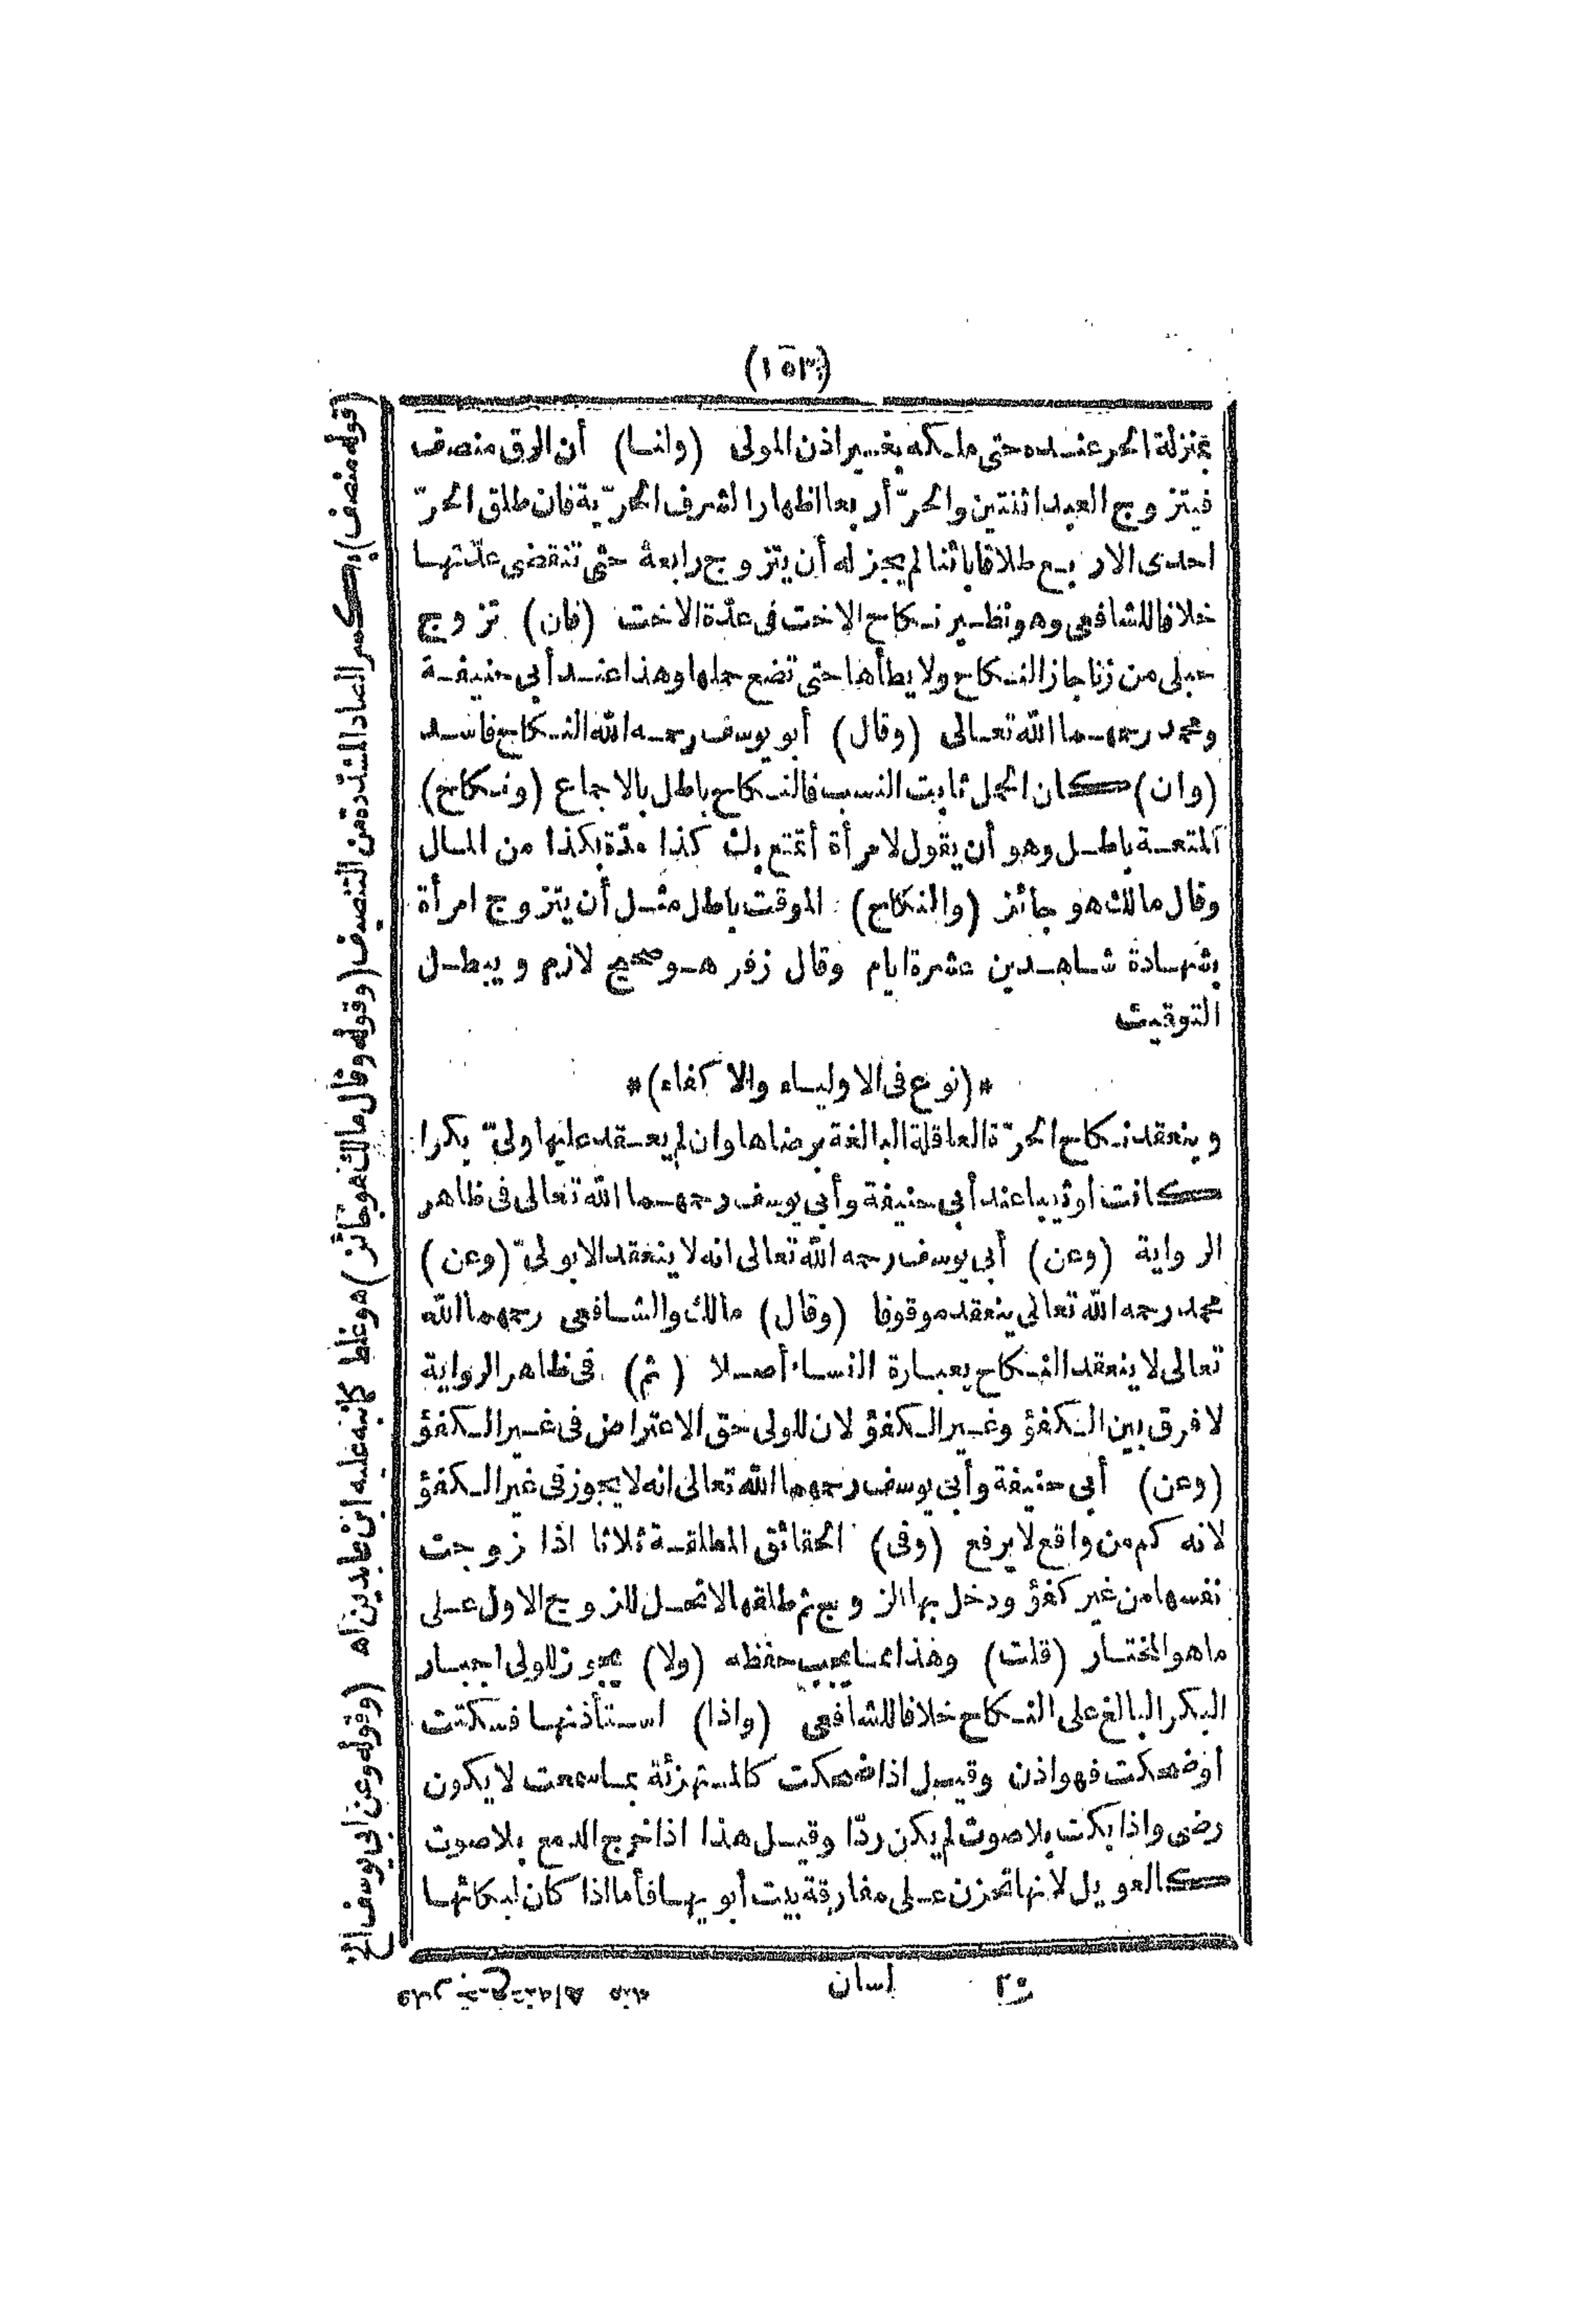 (١٥٣)
بمنزلة الحر عنده حتى ملكه بغير اذن المولى (ولنا) أن الرق منصف
فيتزوج العبد اثنتين والحرّ أربعا اظهارا لشرف الحرّية فان طلق الحرّ
احدى الاربع طلاقا بائنا لم يجز له أن يتزوج رابعة حتى تنقضى عدّتها
خلافا للشافعى وهو نظير نكاح الاخت فى عدّة الاخت (فان) تزوج
حبلى من زنا جاز النكاح ولا يطأها حتى تضع حملها وهذا عند أبى حنيفة
ومحمد رحمهما الله تعالى (وقال) أبو يوسف رحمه الله النكاح فاسد
(وان) كان الحمل ثابت النسب فالنكاح باطل بالاجماع (ونكاح)
المتعة باطل وهو أن يقول لامرأة أتمتع بك كذا مدّة بكذا من المال
وقال مالك هو جائز (والنكاح) الموقت باطل مثل أن يتزوج امرأة
بشهادة شاهدين عشرة ايام وقال زفر هو صحيح لازم ويبطل
التوقيت
*(نوع فى الاولياء والاكفاء)*
وينعقد نكاح الحرّة العاقلة البالغة برضاها وان لم يعقد عليها ولىّ بكرا
كانت أو ثيبا عند أبى حنيفة وأبى يوسف رحمهما الله تعالى فى ظاهر
الرواية (وعن) أبى يوسف رحمه الله تعالى انه لا ينعقد الا بولىّ (وعن)
محمد رحمه الله تعالى ينعقد موقوفا (وقال) مالك والشافعى رحمهما الله
تعالى لا ينعقد النكاح بعبارة النساء أصلا (ثم) فى ظاهر الرواية
لا فرق بين الكفؤ وغير الكفؤ لان للولى حق الاعتراض فى غير الكفؤ
(وعن) أبى حنيفة وأبى يوسف رحمهما الله تعالى انه لا يجوز فى غير الكفؤ
لانه كم من واقع لا يرفع (وفى) الحقائق المطلقة ثلاثا اذا زوجت
نفسها من غير كفؤ ودخل بها الزوج ثم طلقها لا تحل للزوج الاول على
ما هو المختار (قلت) وهذا مما يجب حفظه (ولا) يجوز للولى اجبار
البكر البالغ على النكاح خلافا للشافعى (واذا) استأذنها فسكتت
أو ضحكت فهو اذن وقيل اذا ضحكت كالمستهزئة بما سمعت لا يكون
رضى واذا بكت بلا صوت لم يكن ردّا وقيل هذا اذا خرج الدمع بلا صوت
كالعويل لانها تحزن على مفارقة بيت أبويها فأما اذا كان لبكائها
٢٠ لسان
(قوله منصف) بكسر الصاد المشدّدة من التنصيف (وقوله وقال مالك هو جائز) هو غلط كما نبه عليه ابن عابدين اه (وقوله وعن أبى يوسف الخ